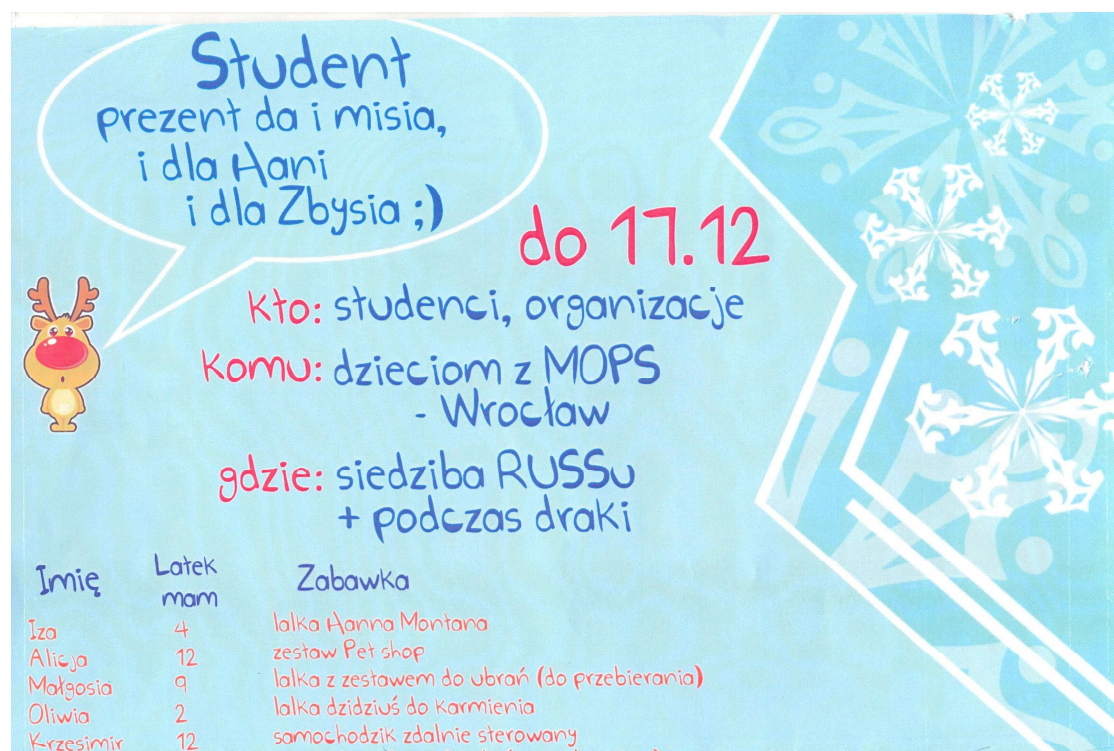 Student
prezent da i misia,
i dla Hani
i dla Zbysia ;)
do 17.12
kto: studenci, organizacje
komu: dzieciom z MOPS
- Wrocław
gdzie: siedziba RUSSu
+ podczas draki
Imię Latek mam Zabawka
Iza 4 lalka Hanna Montana
Alicja 12 zestaw Pet shop
Małgosia 9 lalka z zestawem do ubrań (do przebierania)
Oliwia 2 lalka dzidziuś do karmienia
Krzesimir 12 samochodzik zdalnie sterowany